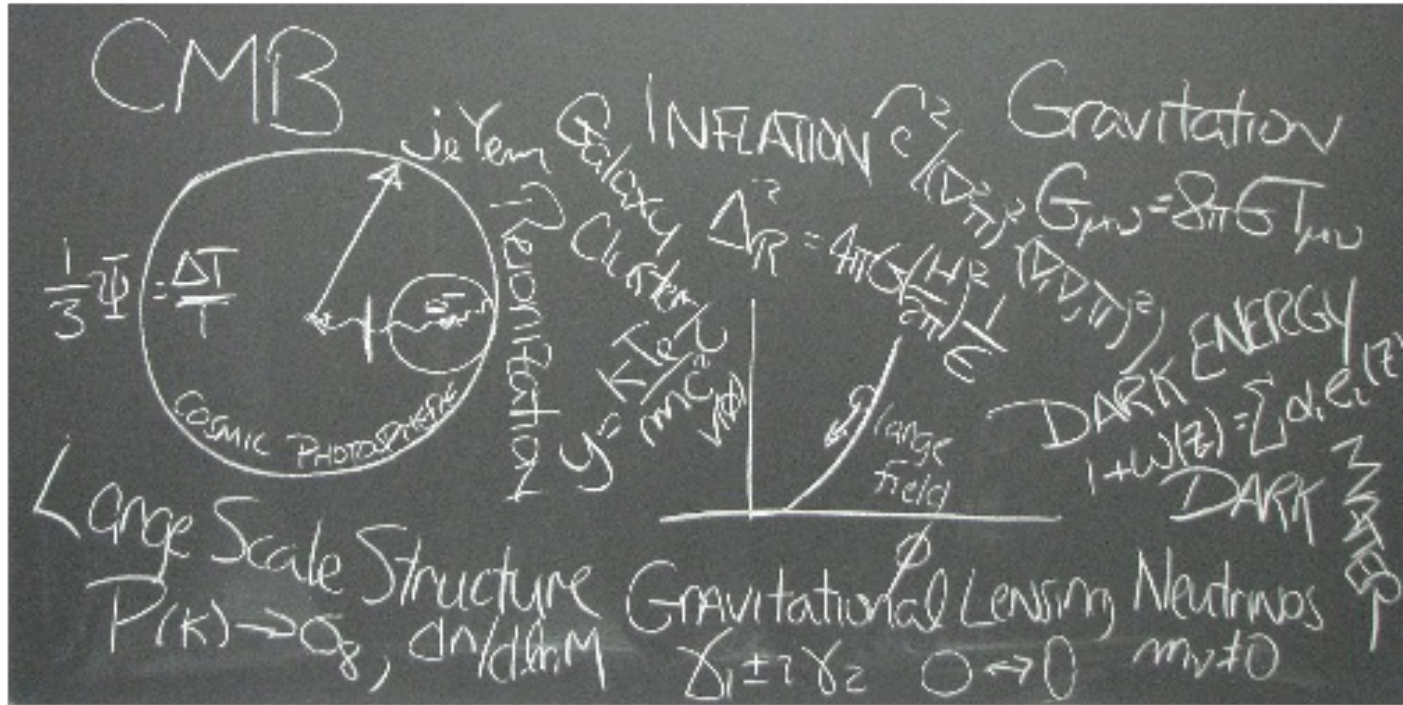 CMB
1/3 Ψ = ΔT/T
COSMIC PHOTOSPHERE
Reionization
Galaxy
Cluster
y = kTe/mc² τ
INFLATION
Δ²_R = 4πG(H/2π)² 1/ε
V(φ)
large
field
φ
Gravitation
G_μν = 8πG T_μν
DARK ENERGY
1+w(z) = Σ αᵢ eᵢ(z)
DARK
MATTER
Large Scale Structure
P(k) → σ₈, dn/dlnM
Gravitational Lensing
γ₁ ± iγ₂ O ↔ 0
Neutrinos
m_ν ≠ 0